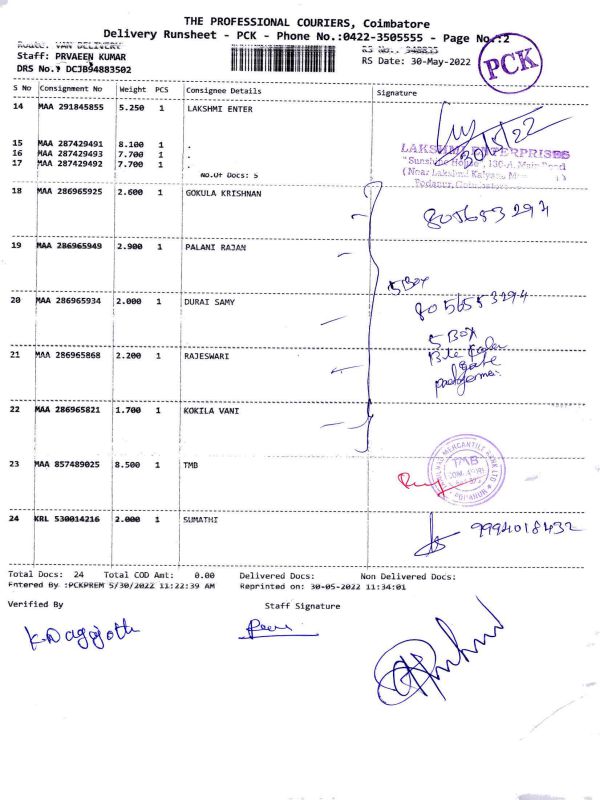 THE PROFESSIONAL COURIERS, Coimbatore
Delivery Runsheet - PCK - Phone No.:0422-3505555 - Page No.:2
Route: VAN DELIVERY RS No.: 948835
Staff: PRVAEEN KUMAR RS Date: 30-May-2022
PCK
DRS No.: DCJB94883502
S No Consignment No Weight PCS Consignee Details Signature
14 MAA 291845855 5.250 1 LAKSHMI ENTER
30/5/22
15 MAA 287429491 8.100 1 .
16 MAA 287429493 7.700 1 .
17 MAA 287429492 7.700 1 .
No.Of Docs: 5
LAKSHMI ENTERPRISES
"Sunshine Home", 130-A, Main Road
(Near Lakshmi Kalyana
18 MAA 286965925 2.600 1 GOKULA KRISHNAN
805653294
19 MAA 286965949 2.900 1 PALANI RAJAN
5 Box
20 MAA 286965934 2.000 1 DURAI SAMY
8056553294
5 Box
gate
21 MAA 286965868 2.200 1 RAJESWARI
22 MAA 286965821 1.700 1 KOKILA VANI
23 MAA 857489025 8.500 1 TMB
MERCANTILE BANK LTD
TMB
24 KRL 530014216 2.000 1 SUMATHI
9994018432
Total Docs: 24 Total COD Amt: 0.00 Delivered Docs: Non Delivered Docs:
Entered By :PCKPREM 5/30/2022 11:22:39 AM Reprinted on: 30-05-2022 11:34:01
Verified By Staff Signature